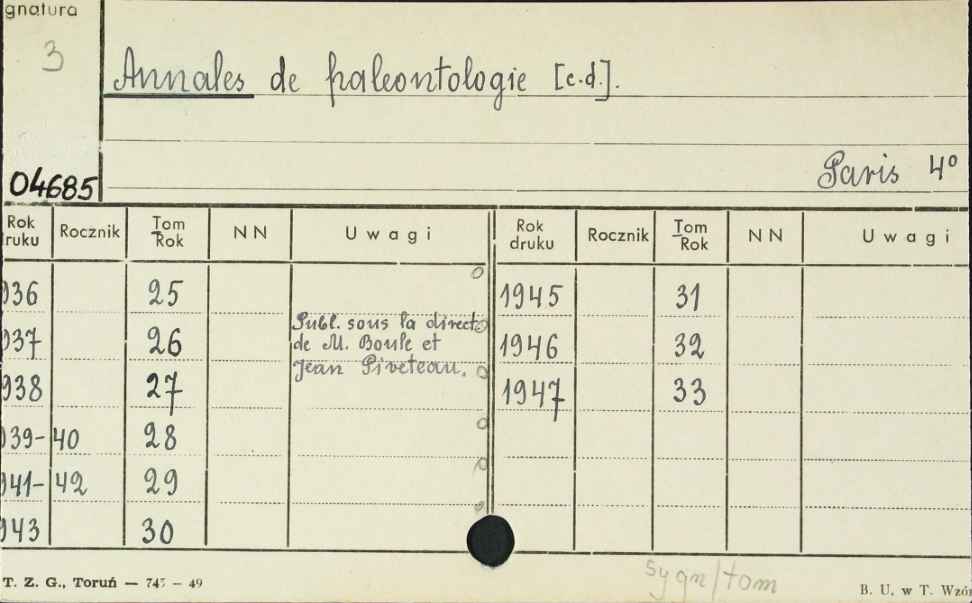 gnatura
3
Annales de paleontologie [c.d.].
Paris 4º
04685
Rok ruku Rocznik Tom Rok NN Uwagi Rok druku Rocznik Tom Rok NN Uwagi
936 25 1945 31
Publ. sous la direct.
937 26 de M. Boule et 1946 32
Jean Piveteau.
938 27 1947 33
939-40 28
941-42 29
943 30
sygn/tom
T. Z. G., Toruń — 745 — 49
B. U. w T. Wzór